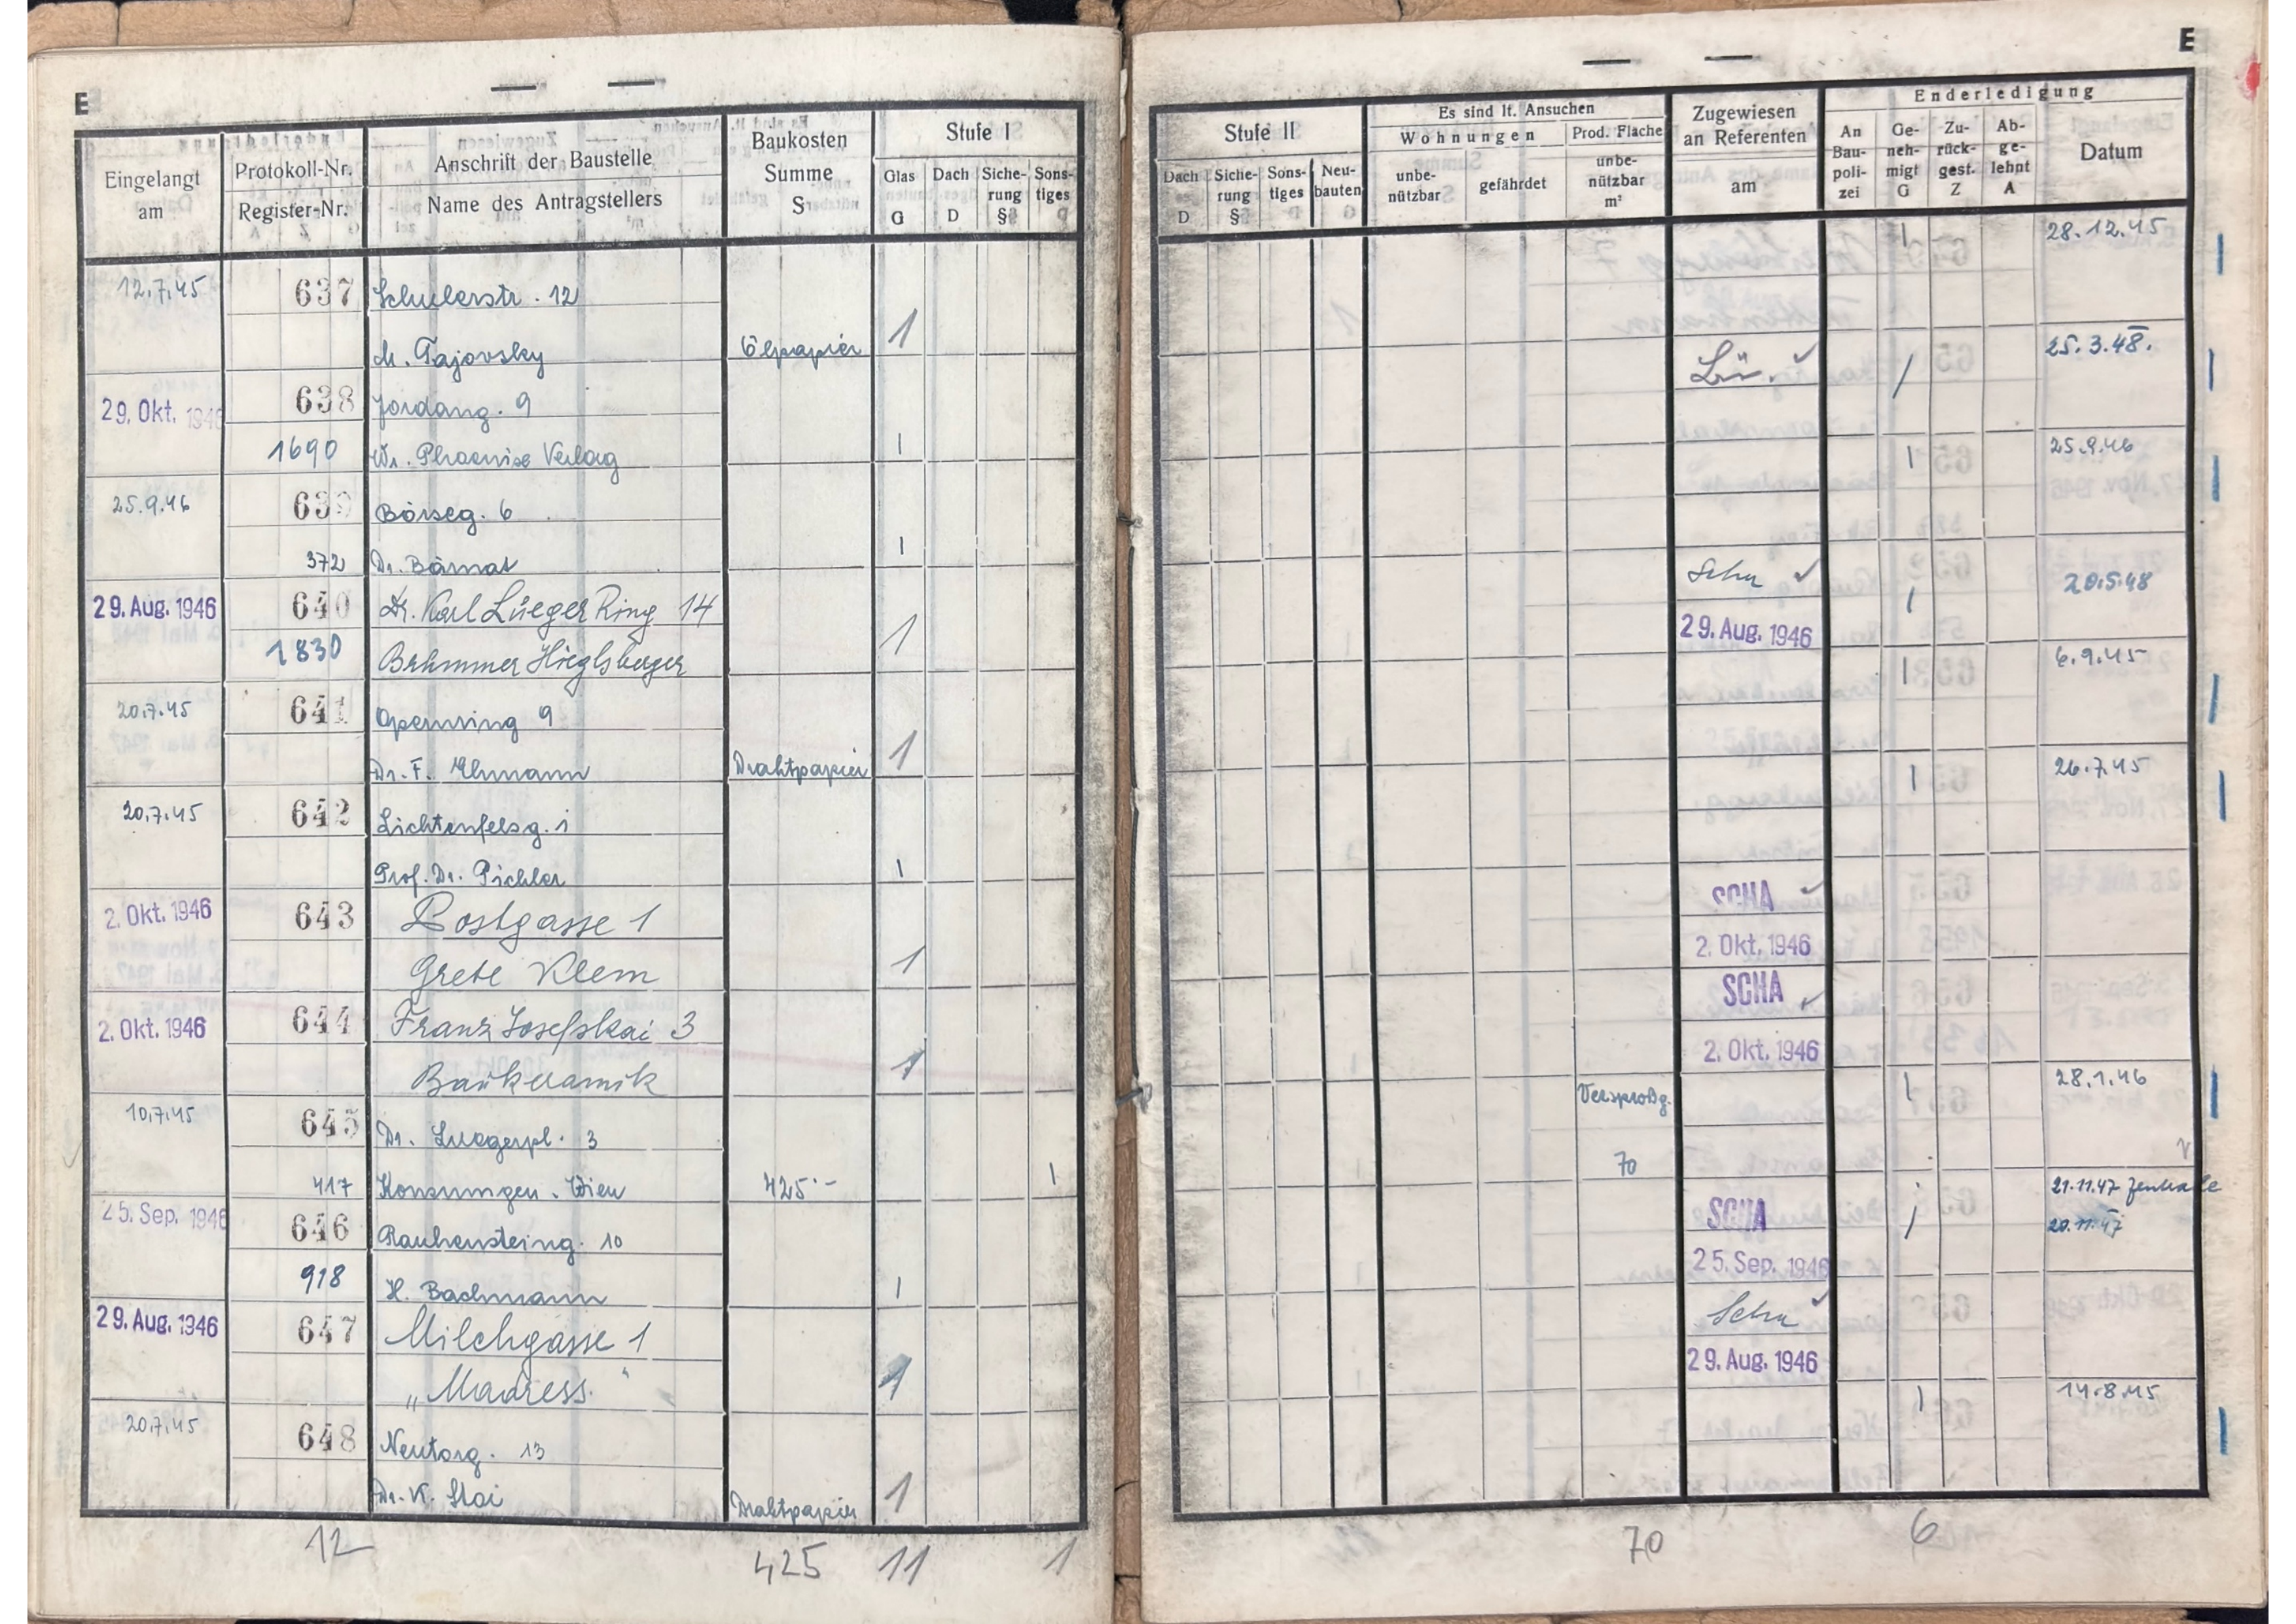 E
Eingelangt am
Protokoll-Nr.
Register-Nr.
Anschrift der Baustelle
Name des Antragstellers
Baukosten Summe S
Stufe I
Glas G
Dach D
Siche-rung §
Sons-tiges
12.7.45 637 Schulerstr. 12
M. Tajovsky Ölpapier 1
29. Okt. 1946 638 Jordang. 9
1690 Wr. Phoenix Verlag 1
25.9.46 639 Börseg. 6
372 Dr. Bärnat 1
29. Aug. 1946 640 Dr. Karl Lueger Ring 14
1830 1
20.7.45 641 Opernring 9
Dr. F. Drahtpapier 1
20.7.45 642 Lichtenfelsg. 1
Prof. Dr. Pichler 1
2. Okt. 1946 643 Postgasse 1
Grete Klem 1
2. Okt. 1946 644 Franz Josefskai 3
Baukeramik 1
10.7.45 645 Dr. Luegerpl. 3
417 Konsumgen. Wien 425.- 1
25. Sep. 1946 646 Rauhensteing. 10
918 H. Bachmann 1
29. Aug. 1946 647 Milchgasse 1
„Madress." 1
20.7.45 648 Neutorg. 13
Dr. K. Drahtpapier 1
12 425 11 1
E
Stufe II
Dach D
Siche-rung §
Sons-tiges
Neu-bauten
Es sind lt. Ansuchen
Wohnungen
unbe-nützbar
gefährdet
Prod. Fläche
unbe-nützbar m²
Zugewiesen an Referenten am
Enderledigung
An Bau-poli-zei
Ge-neh-migt G
Zu-rück-gest. Z
Ab-ge-lehnt A
Datum
1 28.12.45
Lü. ✓ / 25.3.48.
1 25.9.46
Schu ✓ 1 20.5.48
29. Aug. 1946
1 6.9.45
1 26.7.45
SCHA ✓
2. Okt. 1946
SCHA ✓
2. Okt. 1946
1 28.1.46
70
21.11.47 Zentrale
SCHA / 20.11.47
25. Sep. 1946
Schu ✓
29. Aug. 1946
1 14.8.45
70 6